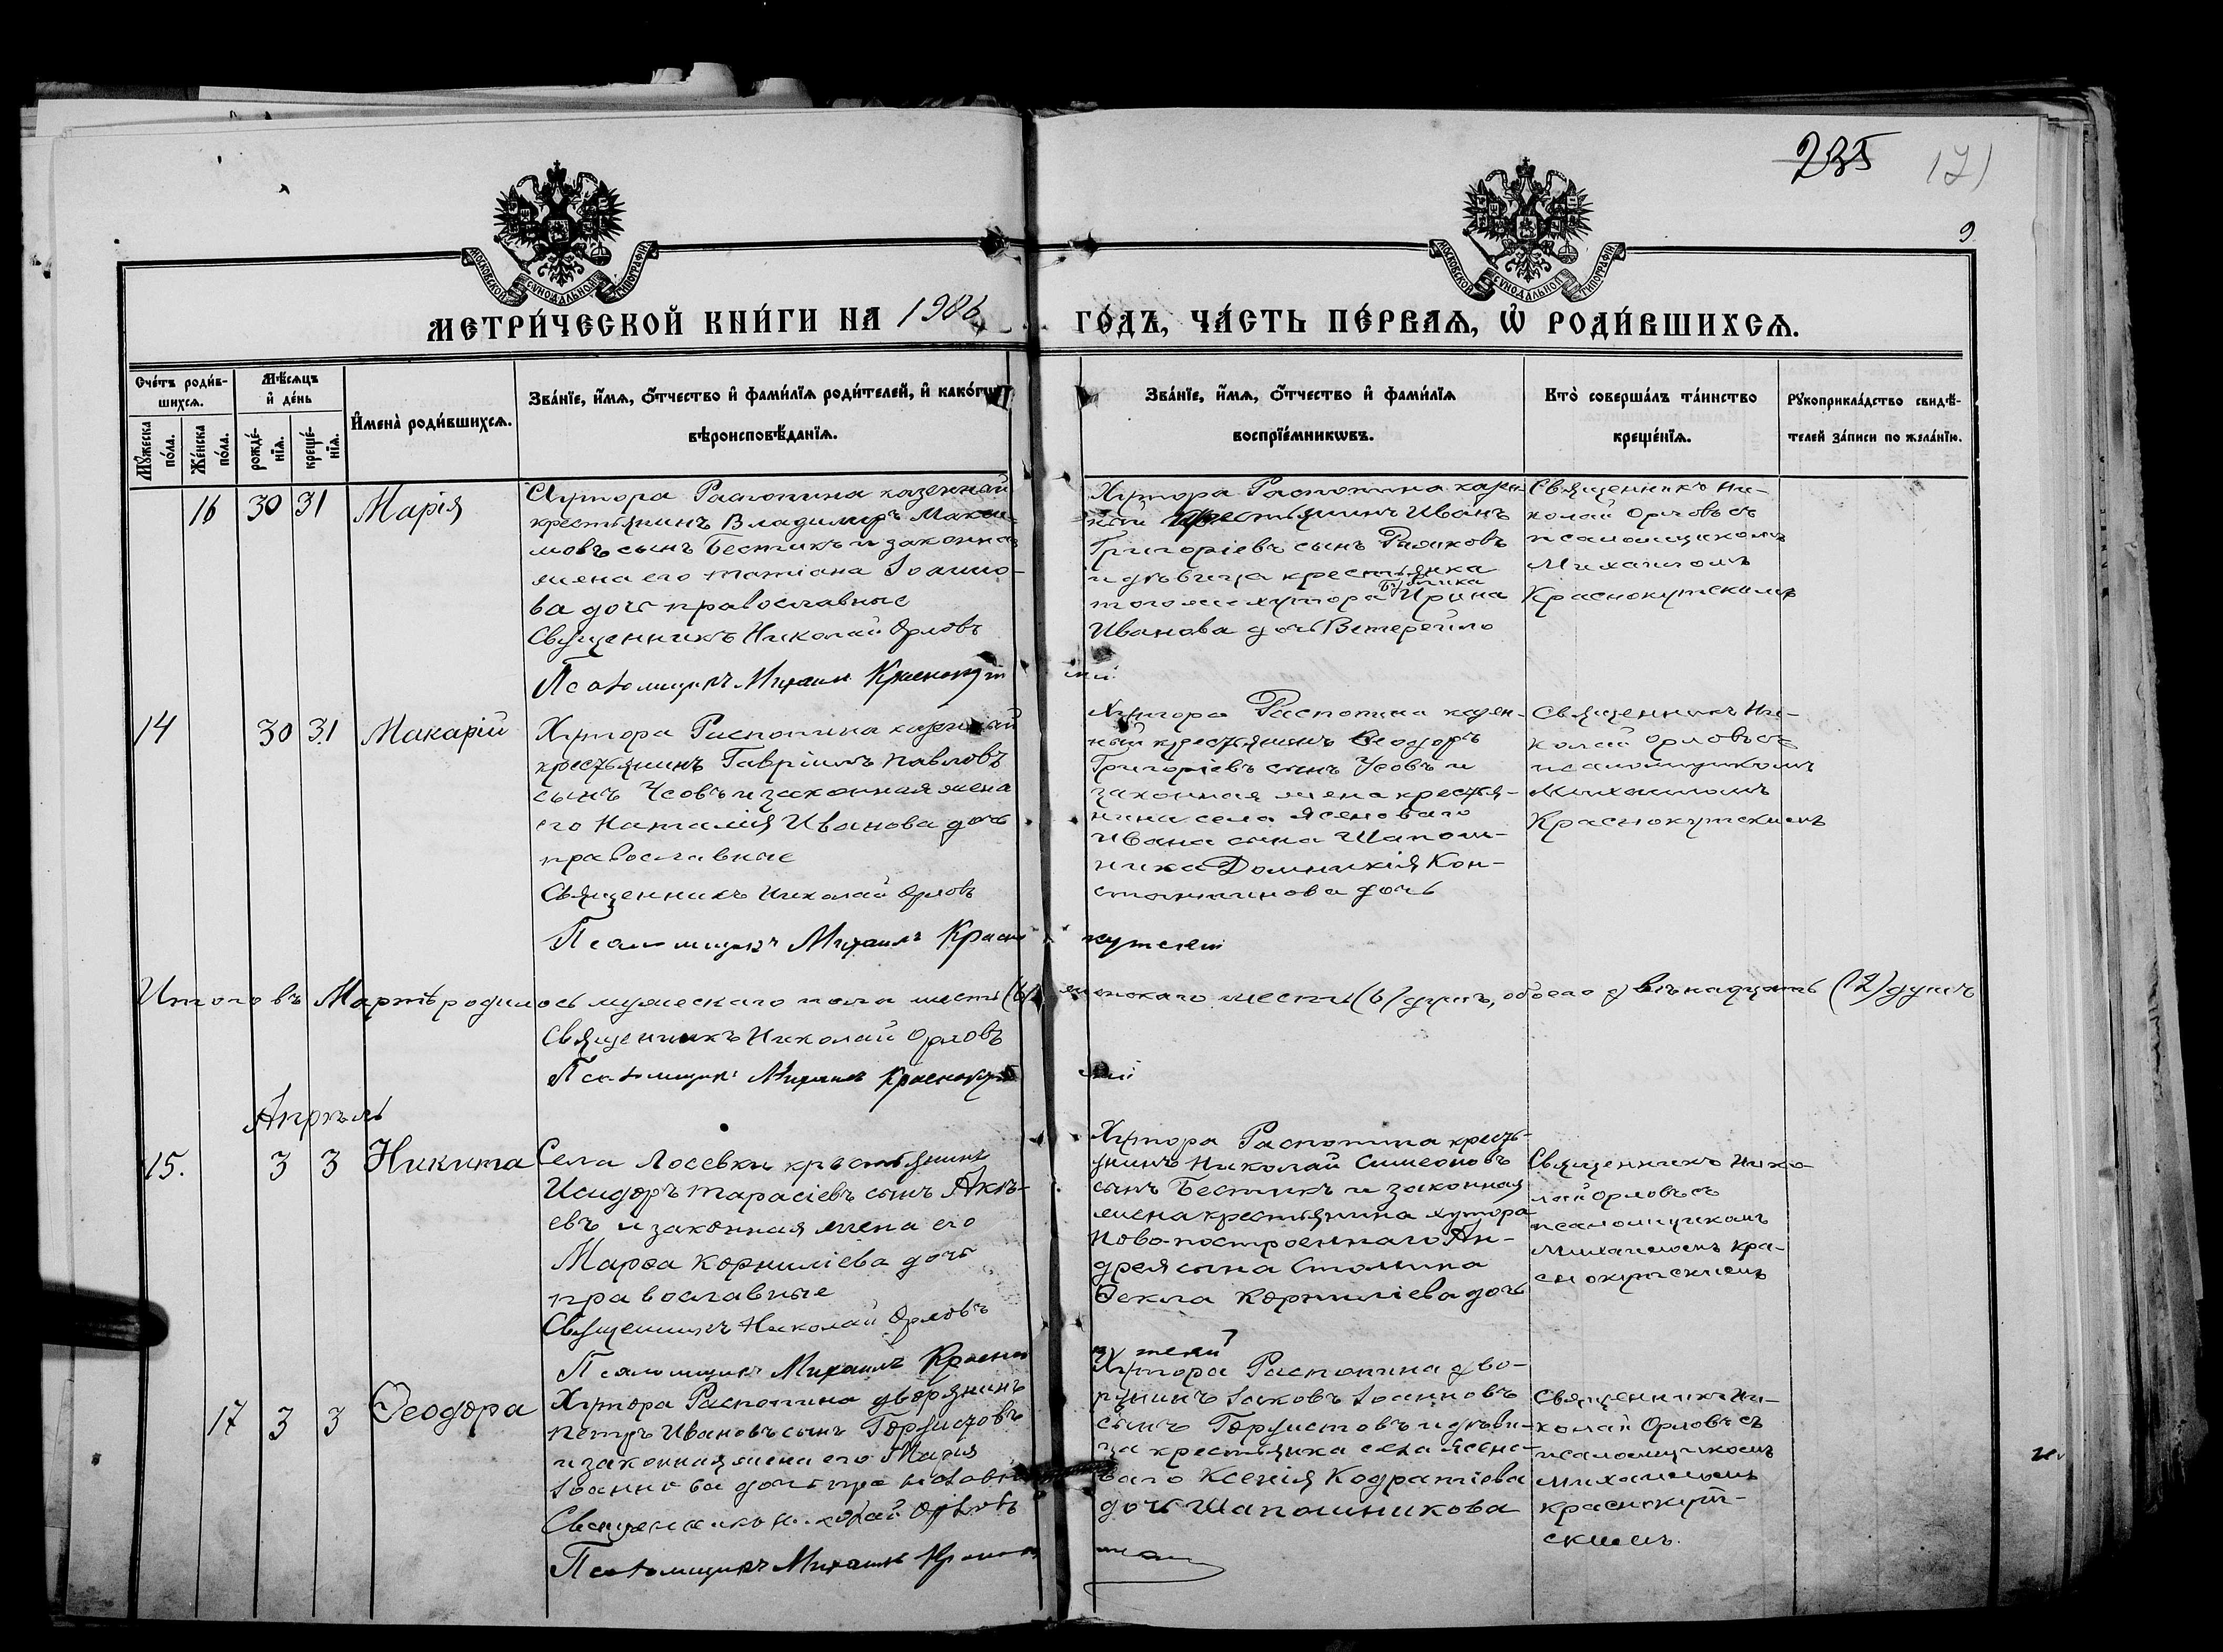 235
171
9
МОСКОВСКОЙ СѴНОДАЛЬНОЙ ТИПОГРАФІИ
МОСКОВСКОЙ СѴНОДАЛЬНОЙ ТИПОГРАФІИ
МЕТРИ́ЧЕСКОЙ КНИ́ГИ НА 1906
ГО́ДЪ, ЧА́СТЬ ПЕ́РВАѦ, Ѡ҆ РОДИ́ВШИХСѦ.
Сче́тъ роди́в-
шихсѧ.
Мѣ́сѧцъ
и҆ де́нь
Мꙋ́жеска
по́ла.
Же́нска
по́ла.
рожде́-
нїѧ.
креще́-
нїѧ.
И҆мена̀ роди́вшихсѧ.
Зва́нїе, и҆́мѧ, ѻ҆́тчество и҆ фами́лїѧ роди́телей, и҆ како́гѡ
вѣроисповѣ́данїѧ.
Зва́нїе, и҆́мѧ, ѻ҆́тчество и҆ фами́лїѧ
воспрїе́мникѡвъ.
Кто̀ соверша́лъ та́инство
креще́нїѧ.
Рꙋкоприкла́дство свидѣ́-
телей за́писи по жела́нїю.
16 30 31 Марія
Хутора Распопина казенный
крестьянинъ Владимиръ Макси-
мовъ сынъ Бестикъ и законная
жена его Татіана Іоанно-
ва дочь православные
Священникъ Николай Орловъ
Псаломщикъ Михаилъ Краснокутскій
Хутора Распопина казен-
ный крестьянинъ Иванъ
Григоріевъ сынъ
и дѣвица крестьянка
того же хутора Ирина
Иванова дочь
Священникъ Ни-
колай Орловъ съ
псаломщикомъ
Михаиломъ
Краснокутскимъ
14 30 31 Макарій
Хутора Распопина казенный
крестьянинъ Гавріилъ Павловъ
сынъ Усовъ и законная жена
его Наталія Иванова дочь
православные
Священникъ Николай Орловъ
Псаломщикъ Михаилъ Краснокутскій
Хутора Распопина казен-
ный крестьянинъ Ѳеодоръ
Григоріевъ сынъ Усовъ и
законная жена крестья-
нина села Ясеноваго
Ивана сына Шапош-
ника Домникія Кон-
стантинова дочь
Священникъ Ни-
колай Орловъ съ
псаломщикомъ
Михаиломъ
Краснокутскимъ
Итого въ Мартѣ родилось мужескаго пола шесть (6) женскаго шесть (6) душъ, обоего двѣнадцать (12) душъ
Священникъ Николай Орловъ
Псаломщикъ Михаилъ Краснокутскій
Апрѣль
15. 3 3 Никита
Села Лосевки крестьянинъ
Исидоръ Тарасіевъ сынъ
евъ и законная жена его
Марѳа Корниліева дочь
православные
Священникъ Николай Орловъ
Псаломщикъ Михаилъ Краснокутскій
Хутора Распопина кресть-
янинъ Николай Симеоновъ
сынъ Бестикъ и законная
жена крестьянина хутора
Ново-построеннаго Ан-
дрея сына Столина
Ѳекла Корниліева дочь
Священникъ Нико-
лай Орловъ съ
псаломщикомъ
Михаиломъ Кра-
снокутскимъ
17 3 3 Ѳеодора
Хутора Распопина дворянинъ
Петръ Ивановъ сынъ
и законная жена его Марія
Іоаннова дочь православные
Священникъ Николай Орловъ
Псаломщикъ Михаилъ
Хутора Распопина дво-
рянинъ Іаковъ Іоанновъ
сынъ и дѣви-
ца крестьянка села Ясено-
ваго Ксенія Кодратіева
дочь Шапошникова
Священникъ Ни-
колай Орловъ съ
псаломщикомъ
Михаиломъ
Краснокут-
скимъ.